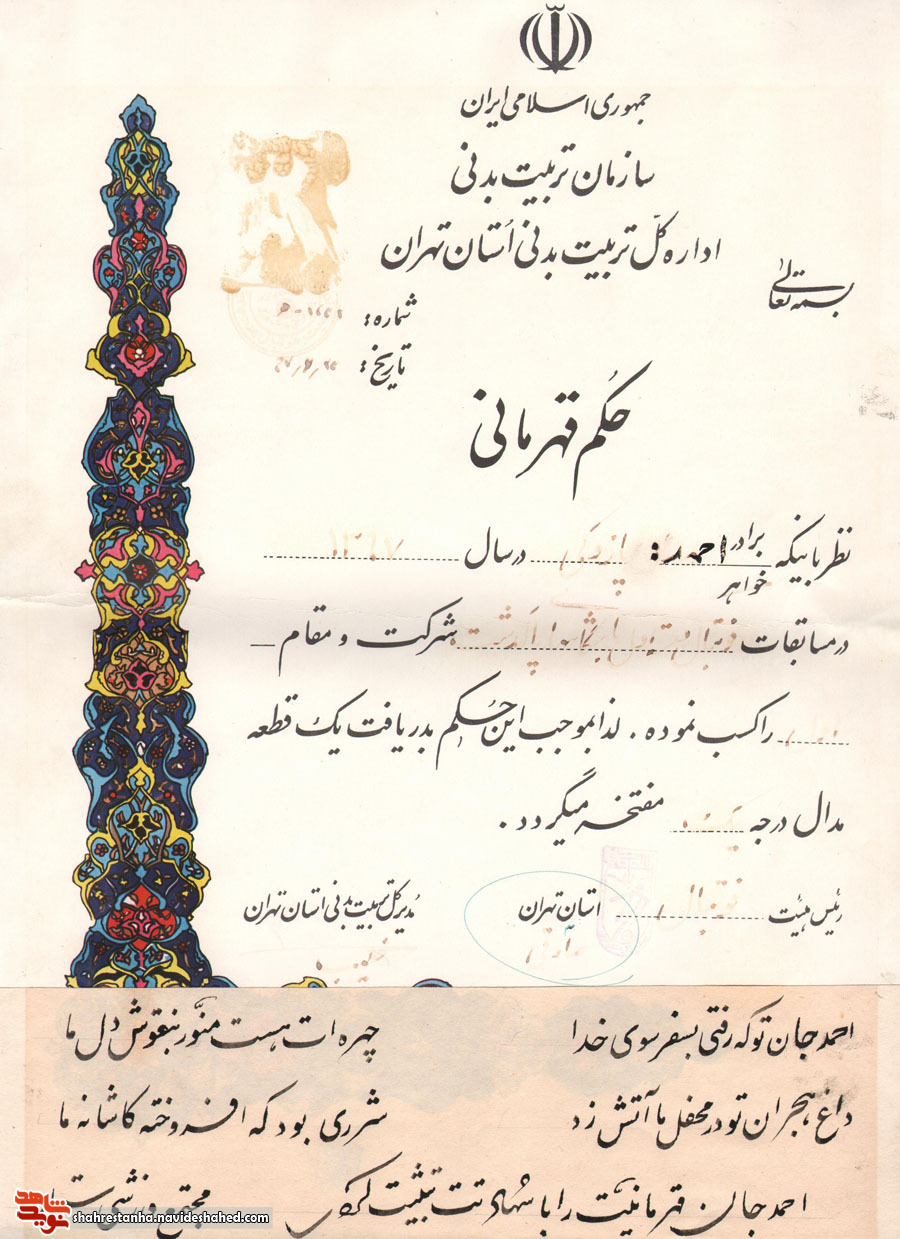 جمهوری اسلامی ایران
سازمان تربیت بدنی
اداره کلّ تربیت بدنی اُستان تهران
بسمه تعالی
شماره:
تاریخ:
حُکم قهرمانی
نظر باینکه برادر خواهر احمد: در سال ۱۳۶۷
در مسابقات شرکت و مقام
را کسب نموده . لذا بموجب این حُکم بدریافت یک قطعه
مدال درجه مفتخر میگردد .
رئیس هیئت فوتبال استان تهران
مُدیر کل تربیت بدنی استان تهران
احمد جان تو که رفتی بسفر سوی خدا چهره ات هست منوّر بنقوش دل ما
داغ هجران تو در محفل ما آتش زد شرری بود که افروخته کاشانه ما
احمد جان قهرمانیت را با شهادتت تثبیت کردی مجتمع ورزشی
نوید شاهد
shahrestanha.navideshahed.com